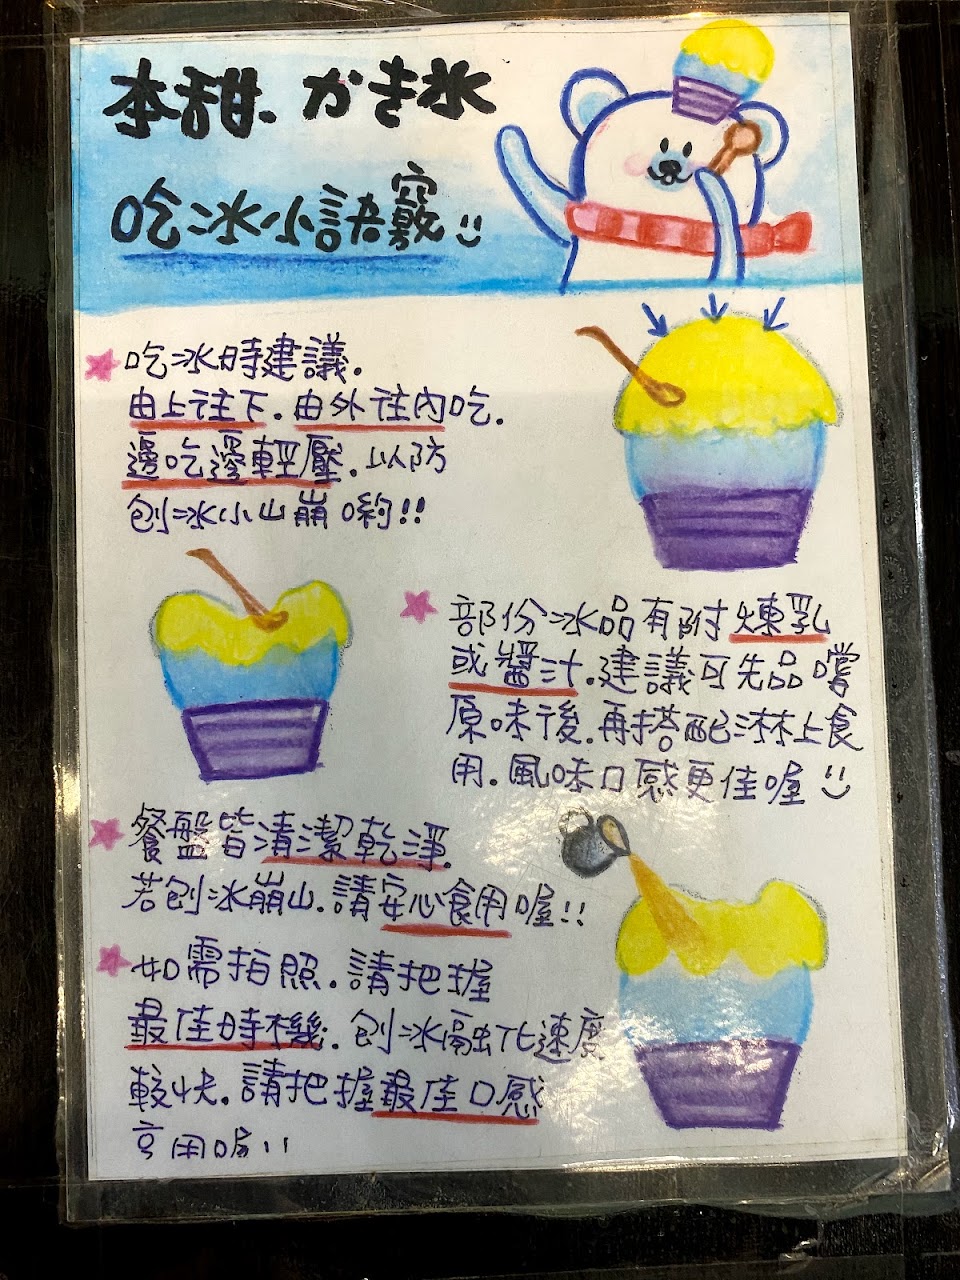 本甜.かき氷
吃冰小訣竅
吃冰時建議.
由上往下.由外往內吃.
邊吃邊輕壓.以防
刨冰小山崩喲!!
部份冰品有附煉乳
或醬汁.建議可先品嚐
原味後.再搭配淋上食
用.風味口感更佳喔
餐盤皆清潔乾淨.
若刨冰崩山.請安心食用喔!!
如需拍照.請把握
最佳時機.刨冰融化速度
較快.請把握最佳口感
享用喔!!